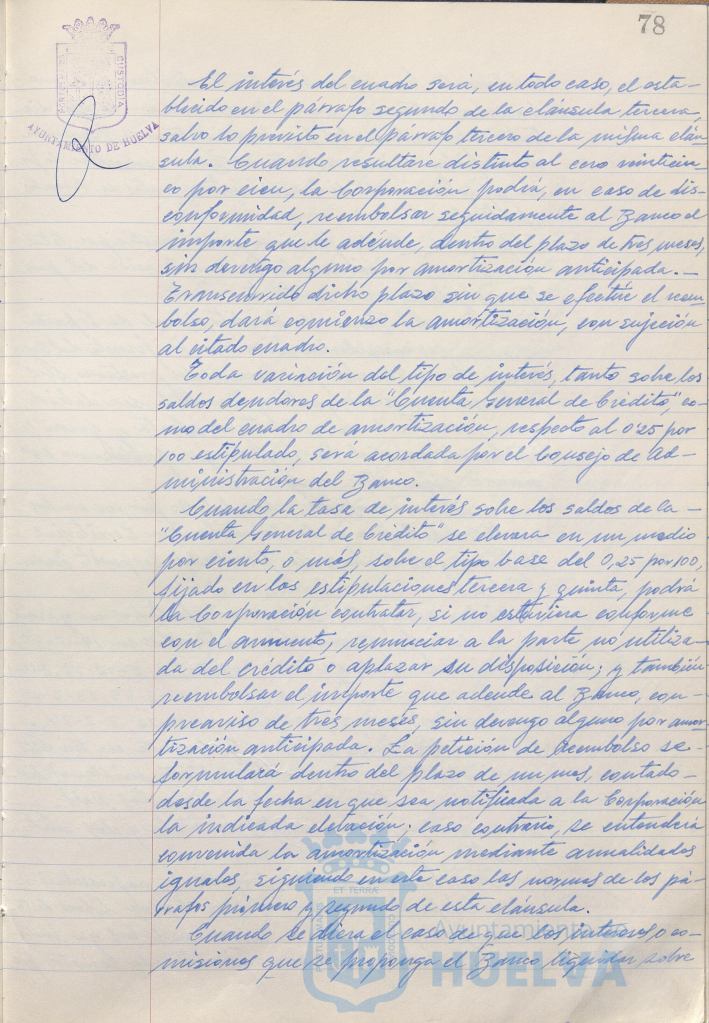 78
CUSTODIA
AYUNTAMIENTO DE HUELVA
El interés del cuadro será, en todo caso, el esta-
blicido en el párrafo segundo de la cláusula tercera,
salvo lo previsto en el párrafo tercero de la misma cláu-
sula. Cuando resultare distinto al cero veinticin-
co por cien, la Corporación podrá, en caso de dis-
conformidad, reembolsar seguidamente al Banco el
importe que le adeude, dentro del plazo de tres meses,
sin devengo alguno por amortización anticipada. -
Transcurrido dicho plazo sin que se efectúe el reem-
bolso, dará comienzo la amortización, con sujeción
al citado cuadro.
Toda variación del tipo de interés, tanto sobre los
saldos deudores de la "Cuenta General de Crédito", co-
mo del cuadro de amortización, respecto al 0'25 por
100 estipulado, será acordada por el Consejo de Ad-
ministración del Banco.
Cuando la tasa de interés sobre los saldos de la -
"Cuenta General de Crédito" se elevara en un medio
por ciento, o más, sobre el tipo base del 0,25 por 100,
fijado en las estipulaciones tercera y quinta, podrá
la Corporación contratar, si no estuviera conforme
con el aumento, renunciar a la parte no utiliza-
da del crédito o aplazar su disposición; y también
reembolsar el importe que adeude al Banco, con
preaviso de tres meses, sin devengo alguno por amor-
tización anticipada. La petición de reembolso se-
formulará dentro del plazo de un mes, contado -
desde la fecha en que sea notificada a la Corporación
la indicada elevación; caso contrario, se entenderá
convenida la amortización mediante anualidades
iguales, siguiendo en este caso las normas de los pá-
rrafos primero y segundo de esta cláusula.
Cuando se diera el caso de que los intereses o co-
misiones que se proponga el Banco liquidar sobre
ET TERRA
Ayuntamiento
HUELVA